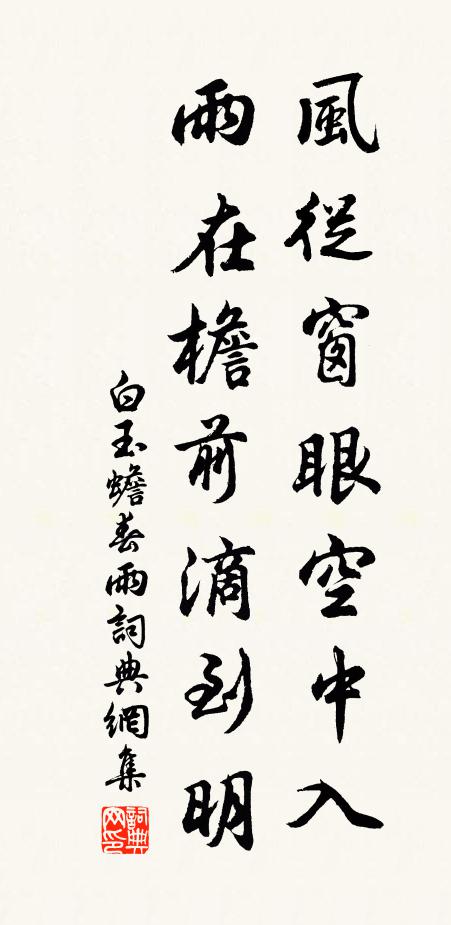 風從窗眼空中入
雨在檐前滴到明
白玉蟾春雨詞典網集
詞典網印